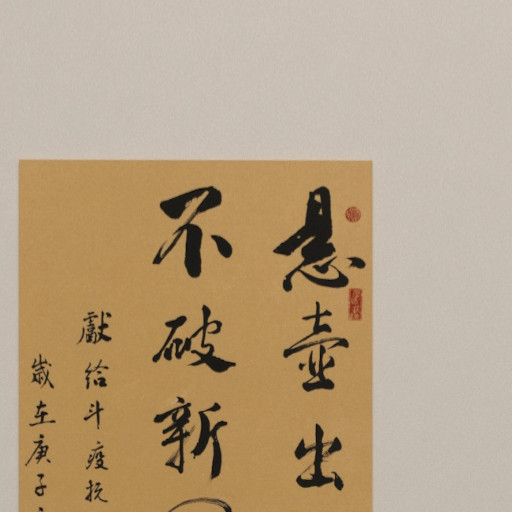 悬壶出
不破新
獻给斗疫抗
歲在庚子